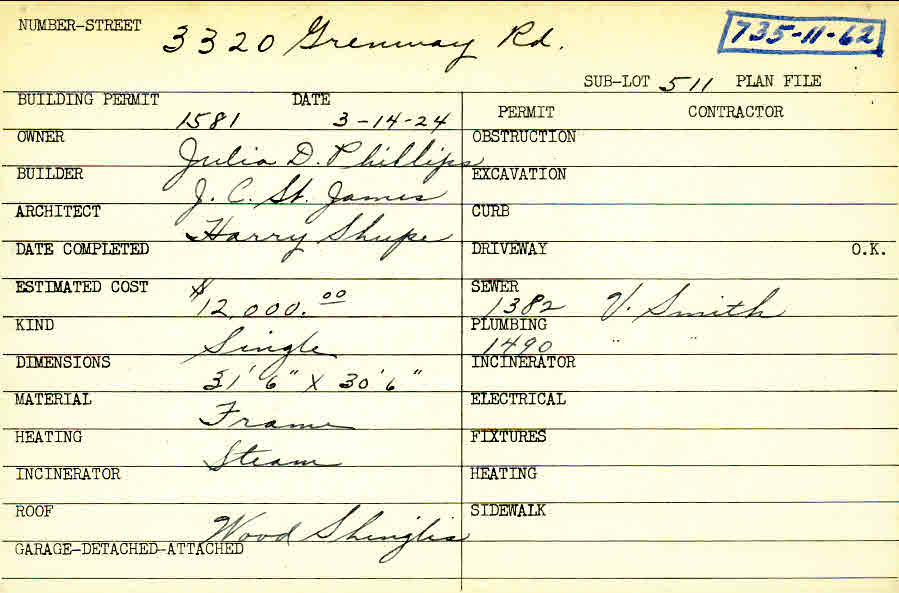 NUMBER-STREET 3320 Grenway Rd. 735-11-62
SUB-LOT 511 PLAN FILE
BUILDING PERMIT 1581 DATE 3-14-24
OWNER Julia D. Phillips
BUILDER J. C. St. James
ARCHITECT Harry Shupe
DATE COMPLETED
ESTIMATED COST $12,000.00
KIND Single
DIMENSIONS 31'6" X 30'6"
MATERIAL Frame
HEATING Steam
INCINERATOR
ROOF Wood Shingles
GARAGE-DETACHED-ATTACHED
PERMIT CONTRACTOR
OBSTRUCTION
EXCAVATION
CURB
DRIVEWAY O.K.
SEWER 1382 V. Smith
PLUMBING 1490 " "
INCINERATOR
ELECTRICAL
FIXTURES
HEATING
SIDEWALK